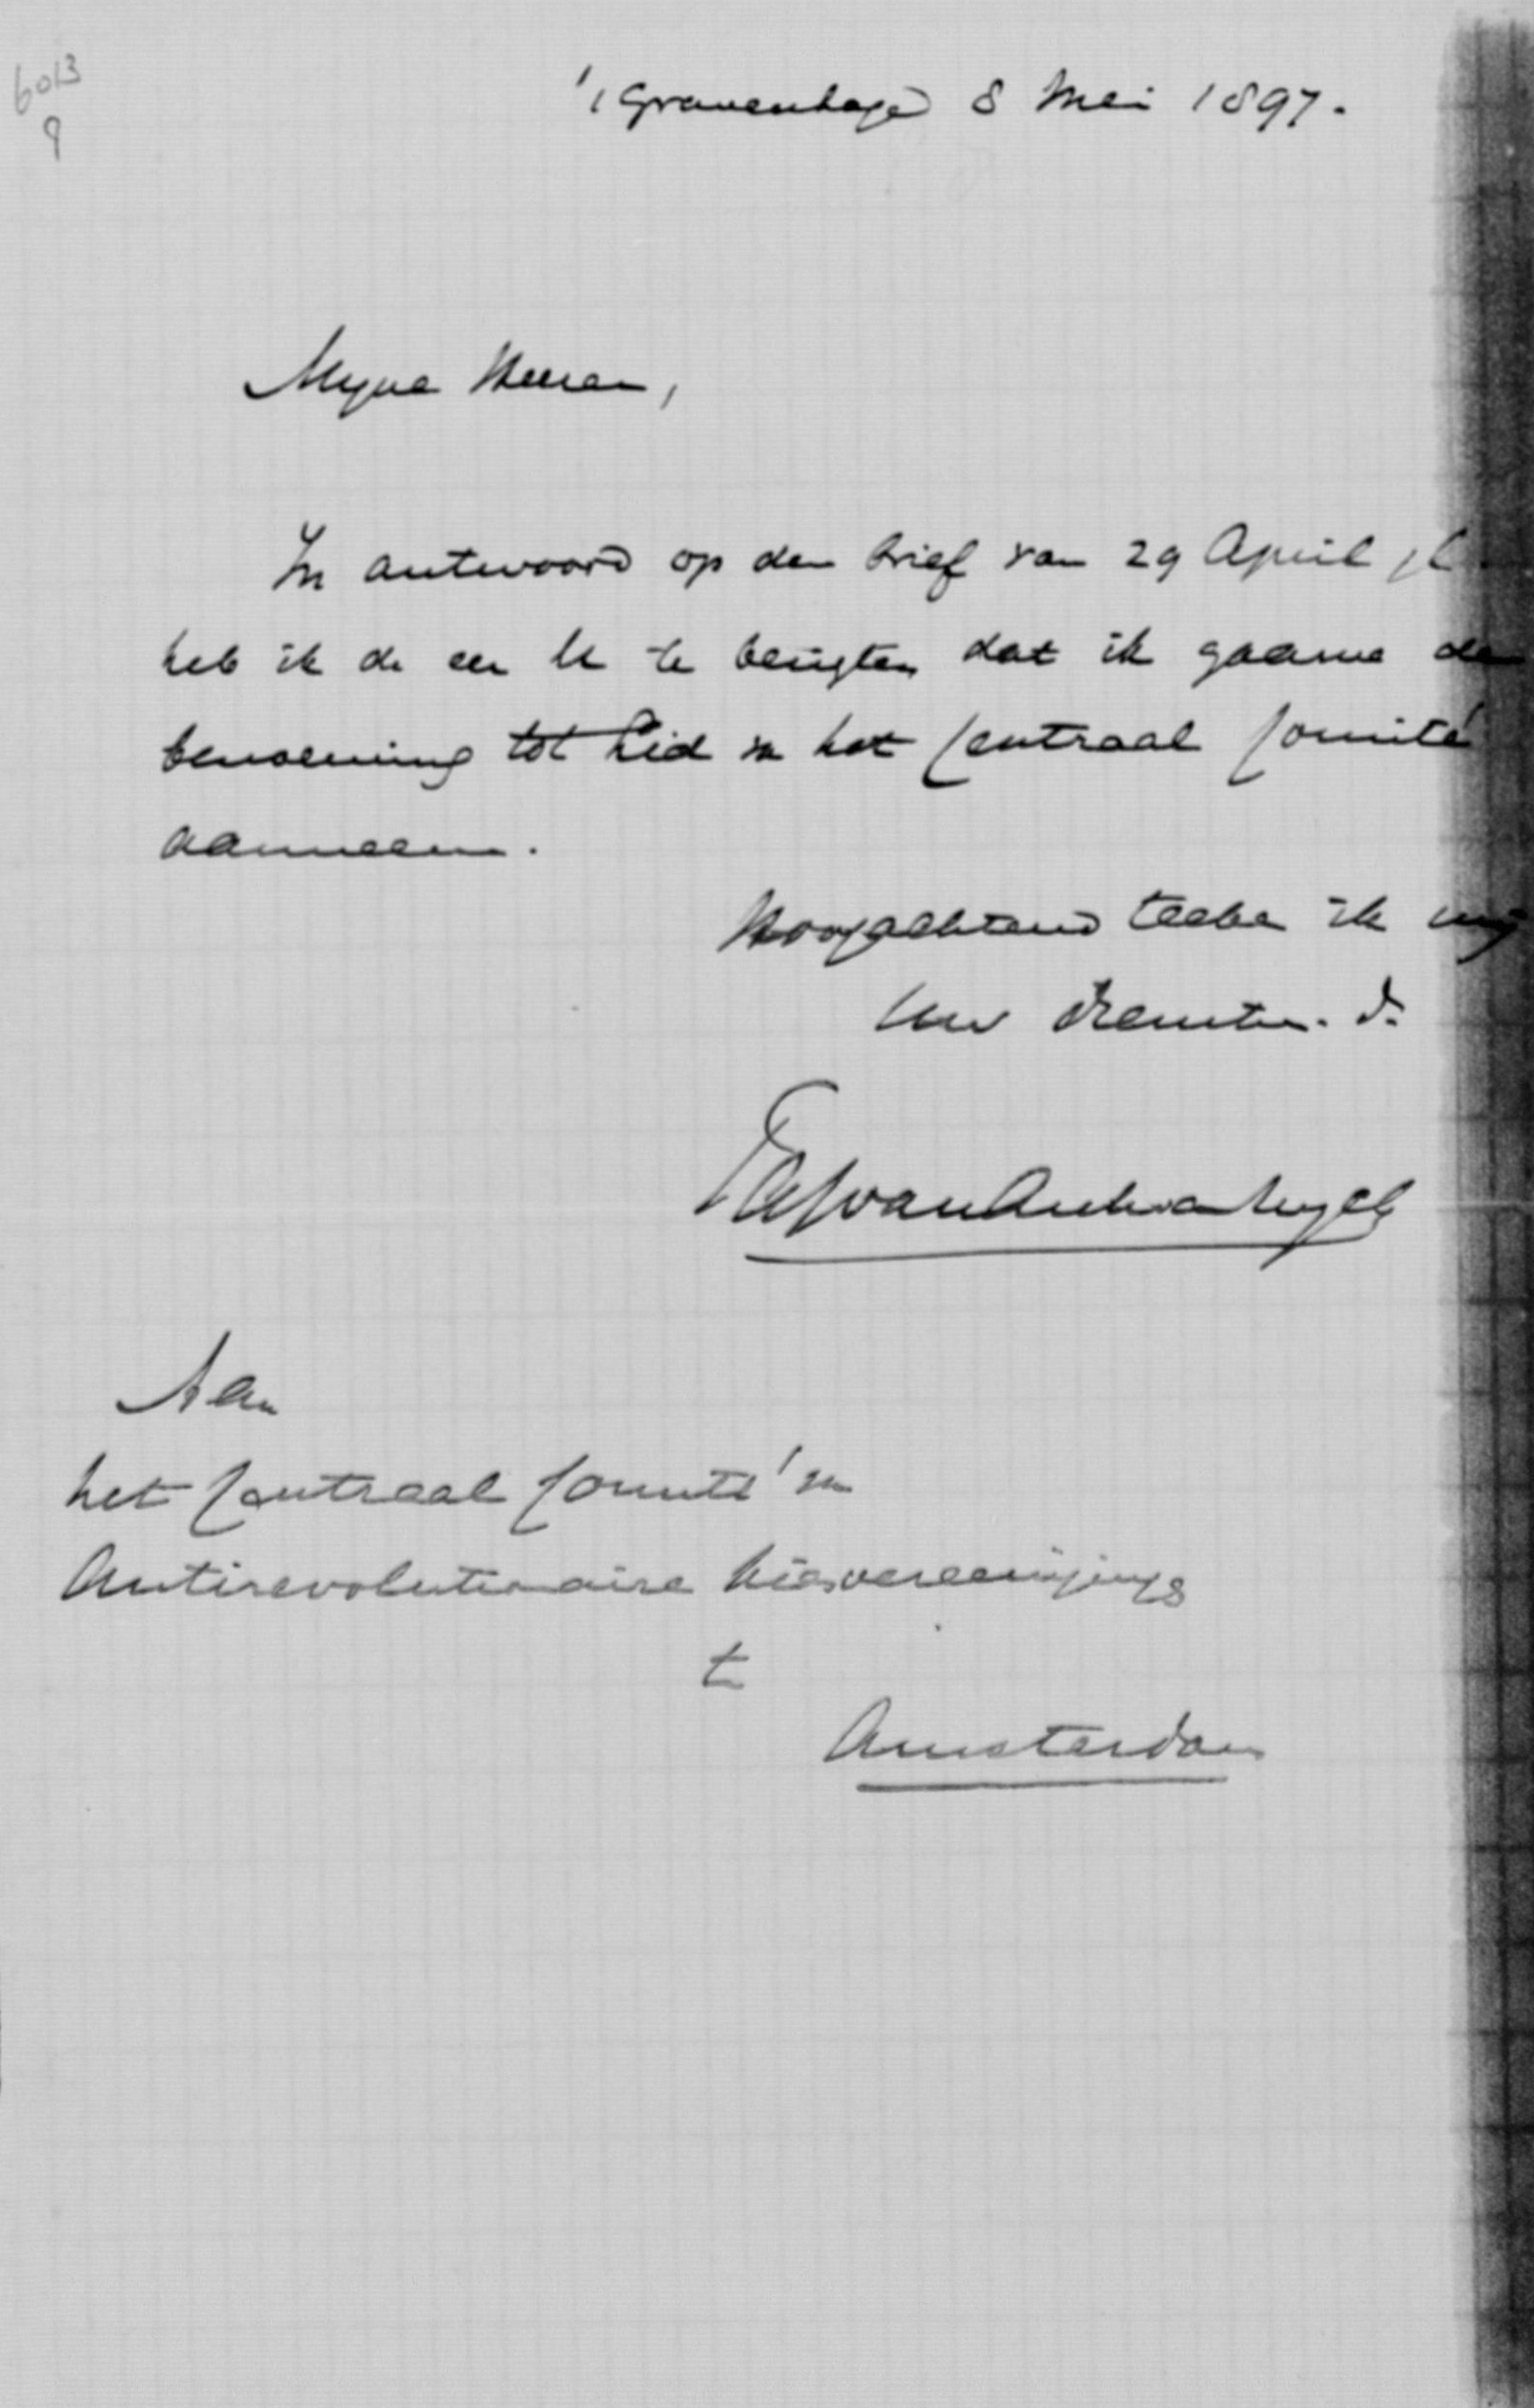 6013
9
's Gravenhage 8 Mei 1897.
Myne Heeren,
In antwoord op den brief van 29 April jl
heb ik de eer U te berigten dat ik gaarne de
benoeming tot lid in het Centraal Comité
aanneem.
Hoogachtend teeken ik mij
Uw dienstw. d.
van
Aan
het Centraal Comité van
Antirevolutionaire Kiesvereenigings
te
Amsterdam